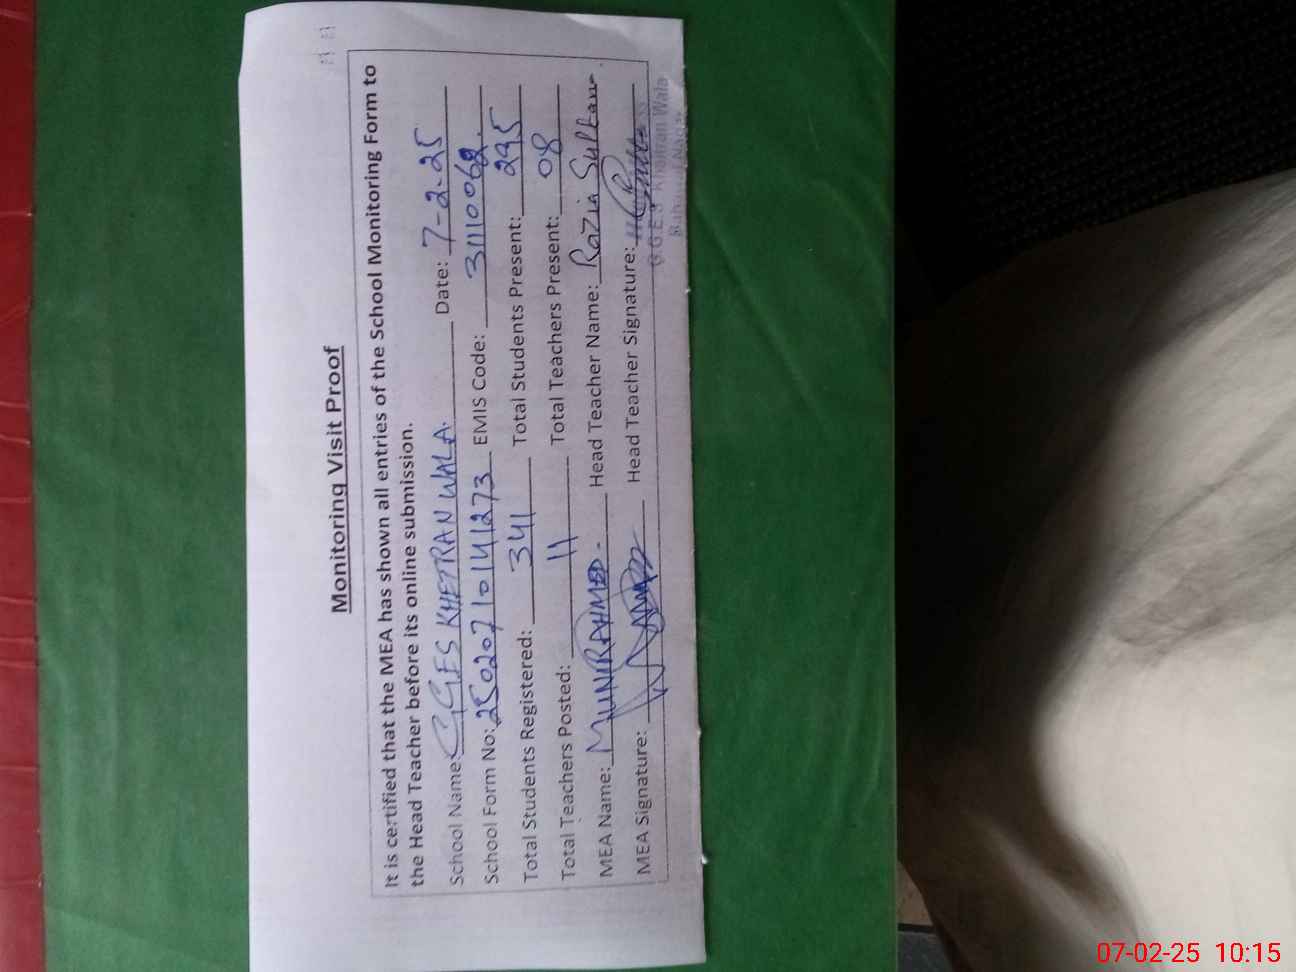 Monitoring Visit Proof
It is certified that the MEA has shown all entries of the School Monitoring Form to
the Head Teacher before its online submission.
School Name: GGES KHETRAN WALA. Date: 7-2-25
School Form No: 250207101141273 EMIS Code: 31110062.
Total Students Registered: 341 Total Students Present: 295
Total Teachers Posted: 11 Total Teachers Present: 08
MEA Name: MUNIR AHMED - Head Teacher Name: Razia Sultana.
MEA Signature: Head Teacher Signature:
G.G.E.S Khatran Wala
07-02-25 10:15